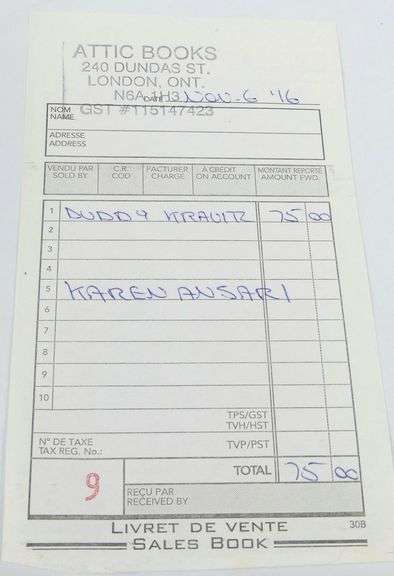 ATTIC BOOKS
240 DUNDAS ST.
LONDON, ONT.
N6A 1H3
DATE NOV. 6 '16
NOM
NAME
GST #115147423
ADRESSE
ADDRESS
VENDU PAR
SOLD BY
C.R.
COD
FACTURER
CHARGE
A CRÉDIT
ON ACCOUNT
MONTANT REPORTÉ
AMOUNT FWD.
1 DUDDY KRAVITZ 75 00
2
3
4
5 KAREN ANSARI
6
7
8
9
10
TPS/GST
TVH/HST
N° DE TAXE
TAX REG. No.:
TVP/PST
TOTAL 75 00
9
REÇU PAR
RECEIVED BY
LIVRET DE VENTE
30B
SALES BOOK